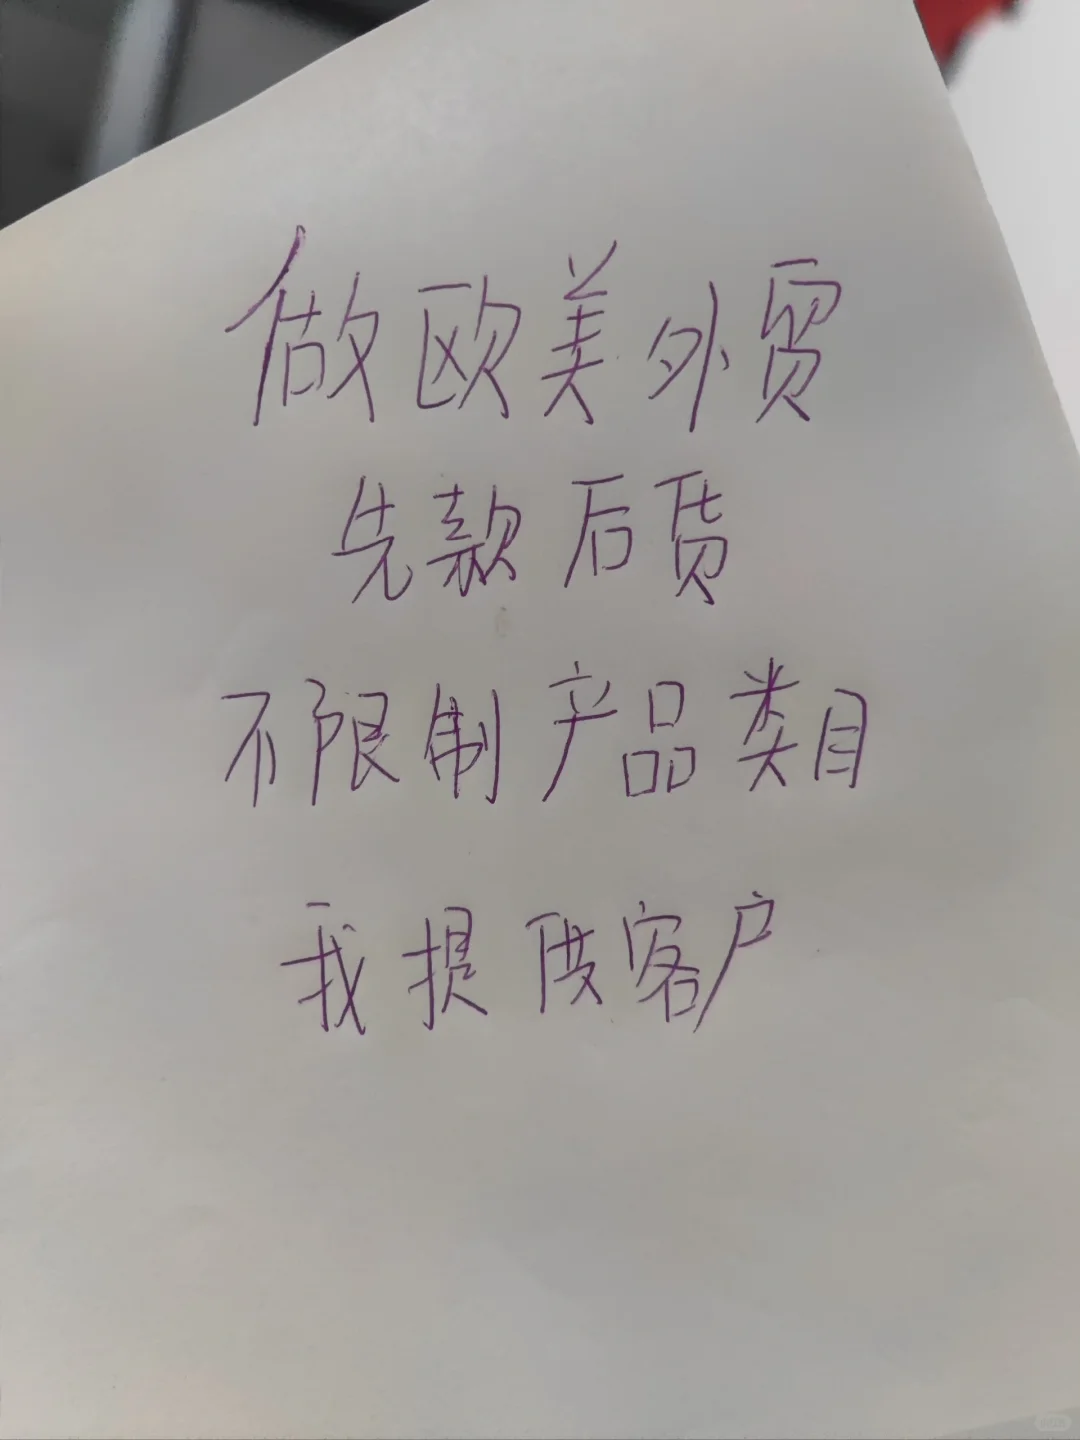 做欧美外贸
先款后货
不限制产品类目
我提供客户